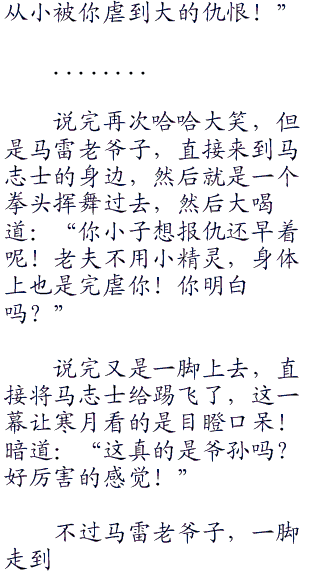 从小被你虐到大的仇恨！”
........
说完再次哈哈大笑，但
是马雷老爷子，直接来到马
志士的身边，然后就是一个
拳头挥舞过去，然后大喝
道：“你小子想报仇还早着
呢！老夫不用小精灵，身体
上也是完虐你！你明白
吗？”
说完又是一脚上去，直
接将马志士给踢飞了，这一
幕让寒月看的是目瞪口呆！
暗道：“这真的是爷孙吗？
好厉害的感觉！”
不过马雷老爷子，一脚
走到